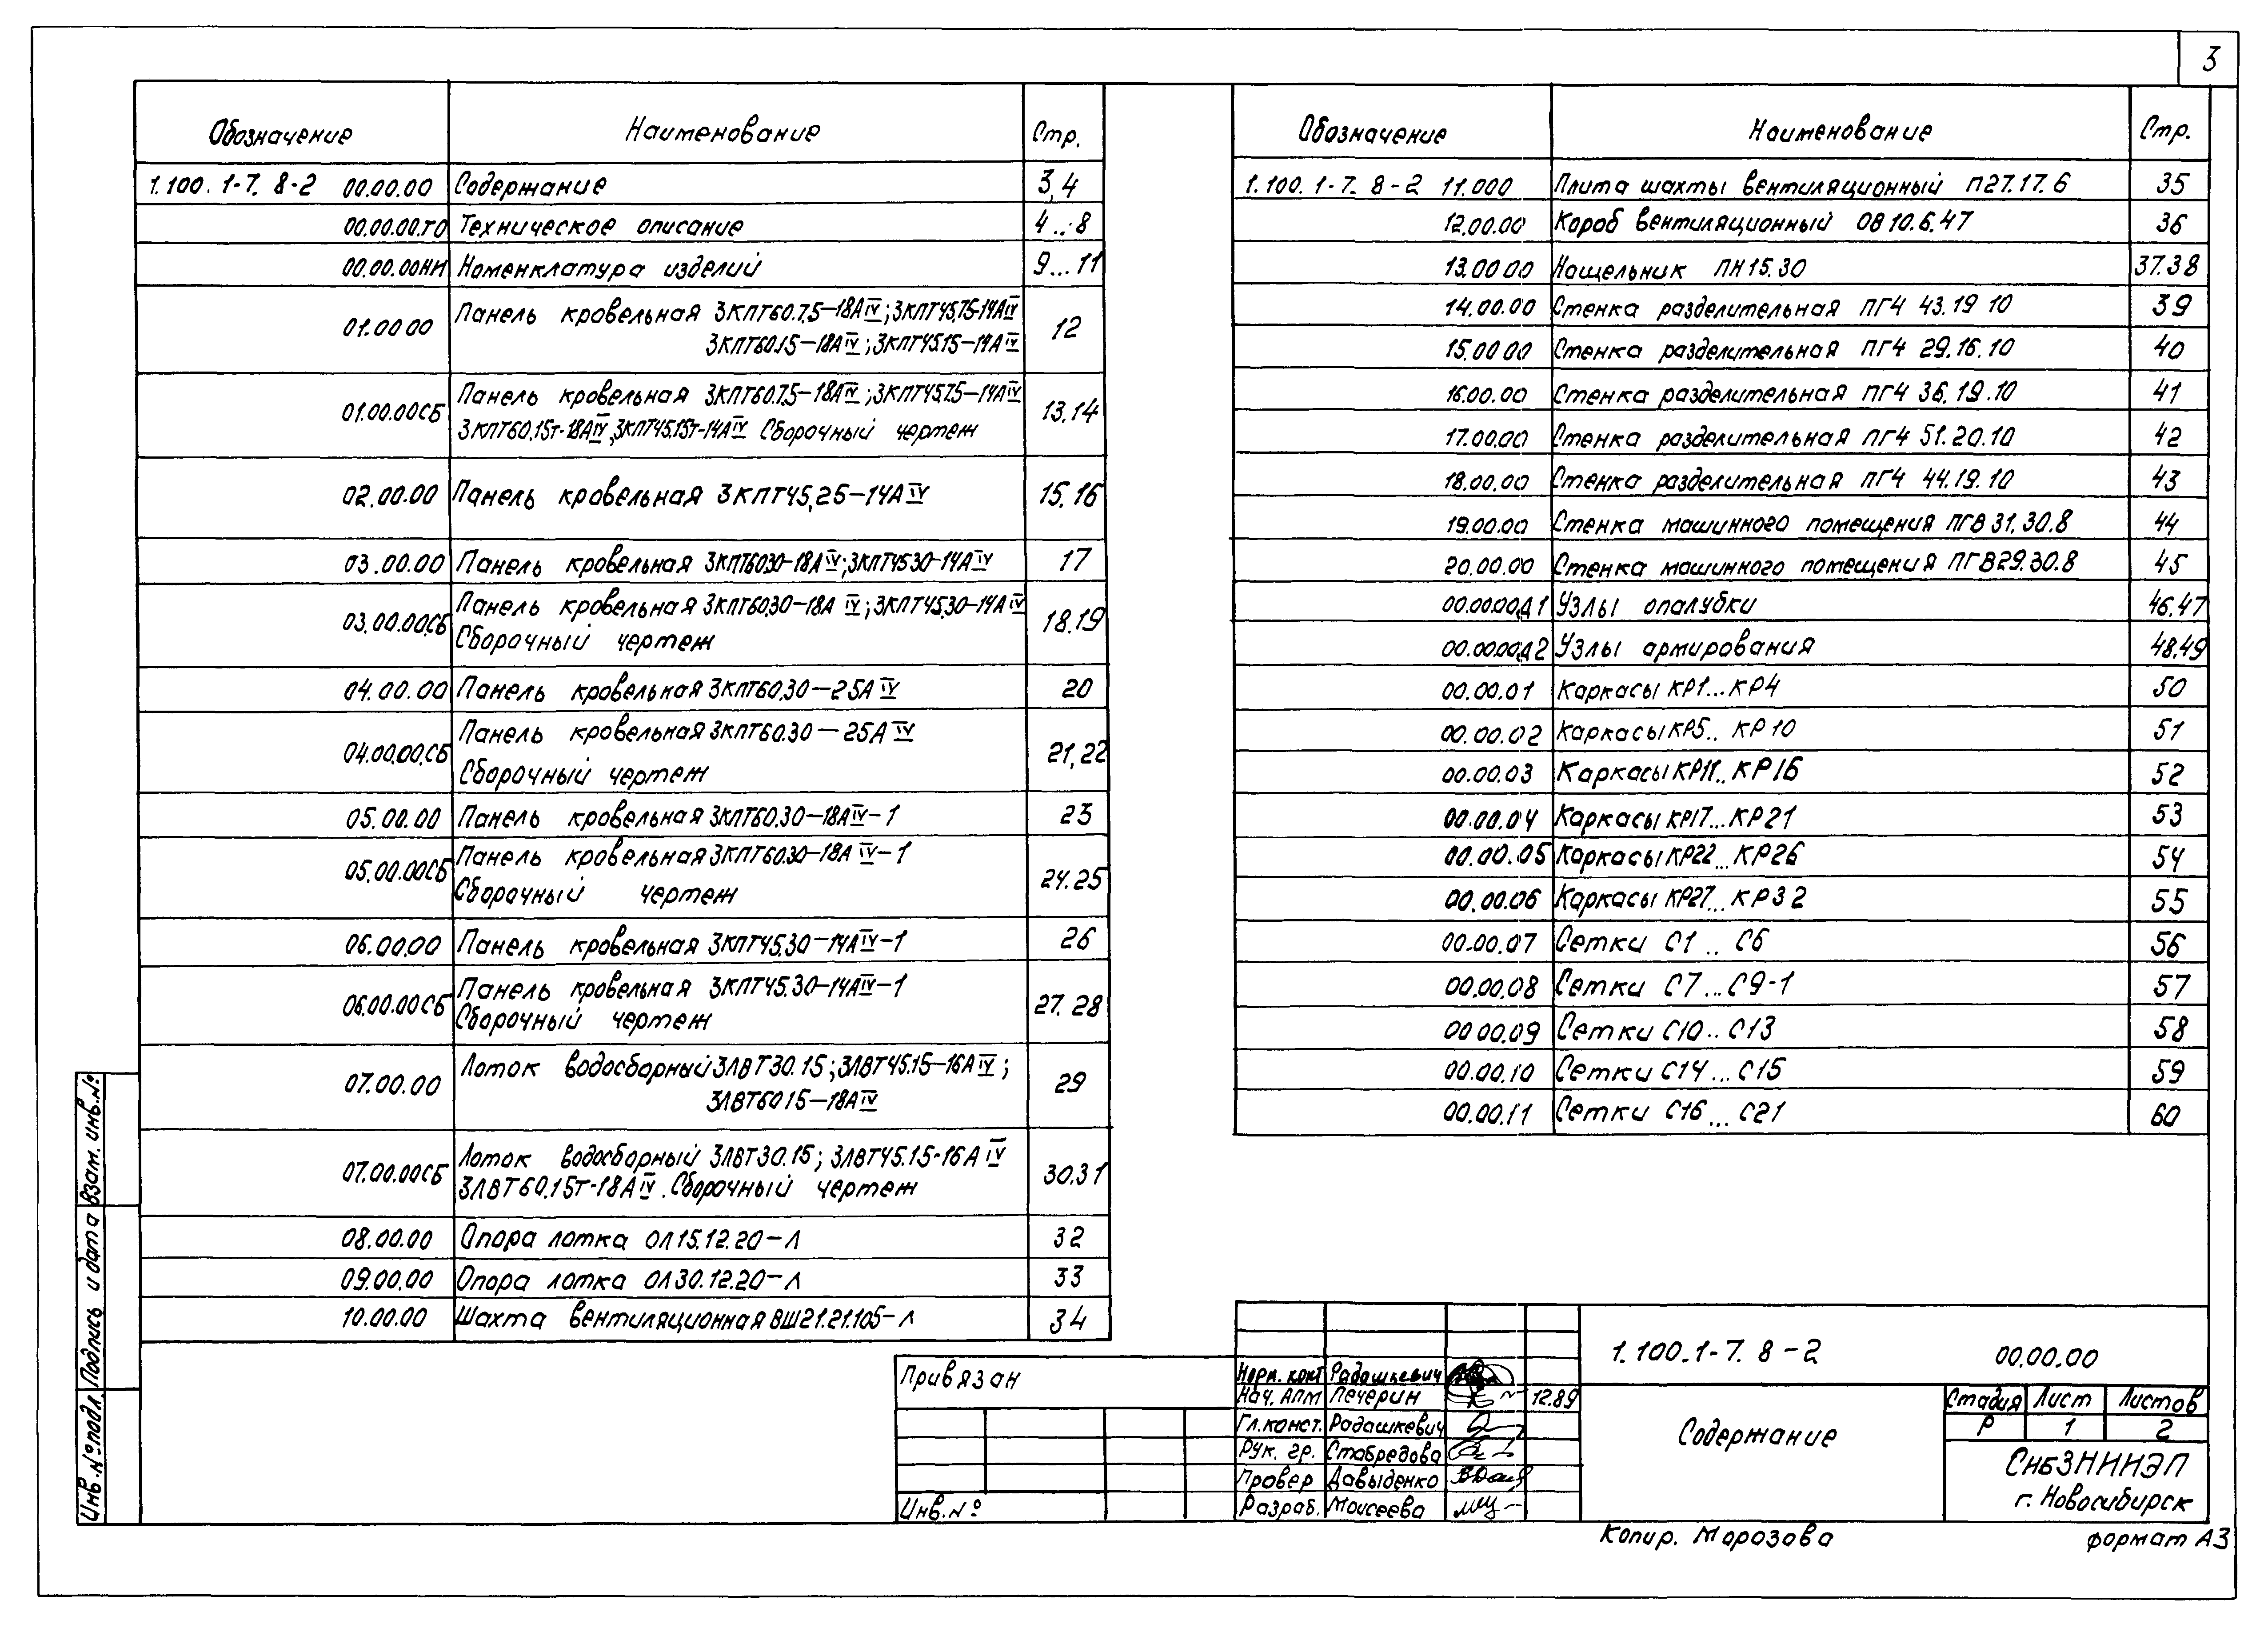 3
Обозначение Наименование Стр.
1.100.1-7. 8-2 00.00.00 Содержание 3,4
00.00.00.ТО Техническое описание 4...8
00.00.00НИ Номенклатура изделий 9...11
01.00 00 Панель кровельная 3КПТ60.7,5-18АIV; 3КПТ45.7,5-14АIV
3КПТ60.15-18АIV; 3КПТ45.15-14АIV 12
01.00.00СБ Панель кровельная 3КПТ60.7,5-18АIV; 3КПТ45.7,5-14АIV
3КПТ60.15т-18АIV, 3КПТ45.15т-14АIV Сборочный чертеж 13,14
02.00.00 Панель кровельная 3КПТ45,25-14АIV 15.16
03.00.00 Панель кровельная 3КПТ60.30-18АIV; 3КПТ45 30-14АIV 17
03.00.00.СБ Панель кровельная 3КПТ60.30-18А IV; 3КПТ45.30-14АIV
Сборочный чертеж 18.19
04.00.00 Панель кровельная 3КПТ60.30-25АIV 20
04.00.00.СБ Панель кровельная 3КПТ60.30-25АIV
Сборочный чертеж 21,22
05.00.00 Панель кровельная 3КПТ60.30-18АIV-1 23
05.00.00СБ Панель кровельная 3КПТ60.30-18АIV-1
Сборочный чертеж 24.25
06.00.00 Панель кровельная 3КПТ45.30-14АIV-1 26
06.00.00СБ Панель кровельная 3КПТ45.30-14АIV-1
Сборочный чертеж 27.28
07.00.00 Лоток водосборный 3ЛВТ30.15; 3ЛВТ45.15-16АIV;
3ЛВТ60 15-18АIV 29
07.00.00СБ Лоток водосборный 3ЛВТ30.15; 3ЛВТ45.15-16АIV
3ЛВТ60.15т-18АIV. Сборочный чертеж 30.31
08.00.00 Опора лотка ОЛ15.12.20-Л 32
09.00.00 Опора лотка ОЛ30.12.20-Л 33
10.00.00 Шахта вентиляционная ВШ21.21.105-Л 34
Обозначение Наименование Стр.
1.100.1-7. 8-2 11.000 Плита шахты вентиляционный П27.17.6 35
12.00.00 Короб вентиляционный 08 10.6.47 36
13.00 00 Нащельник ПН15.30 37.38
14.00.00 Стенка разделительная ПГ4 43.19 10 39
15.00 00 Стенка разделительная ПГ4 29.16.10 40
16.00.00 Стенка разделительная ПГ4 36.19.10 41
17.00.00 Стенка разделительная ПГ4 51.20.10 42
18.00.00 Стенка разделительная ПГ4 44.19.10 43
19.00.00 Стенка машинного помещения ПГВ 31.30.8 44
20.00.00 Стенка машинного помещения ПГВ29.30.8 45
00.00.00Д1 Узлы опалубки 46.47
00.00.00Д2 Узлы армирования 48.49
00.00.01 Каркасы КР1...КР4 50
00.00.02 Каркасы КР5.. КР10 51
00.00.03 Каркасы КР11..КР16 52
00.00.04 Каркасы КР17...КР21 53
00.00.05 Каркасы КР22...КР26 54
00.00.06 Каркасы КР27...КР32 55
00.00.07 Сетки С1 .. С6 56
00.00.08 Сетки С7...С9-1 57
00 00.09 Сетки С10..С13 58
00.00.10 Сетки С14...С15 59
00.00.11 Сетки С16...С21 60
Взам. инв.№
Подпись и дата
Инв.№подл
Привязан
Инв.№
Норм. конт Радашкевич
Нач. АПМ Печерин 12.89
Гл.конст. Радашкевич
Рук. гр. Стабредова
Провер Давыденко
Разраб. Моисеева
1.100.1-7. 8-2 00.00.00
Содержание
Стадия Лист Листов
Р 1 2
СибЗНИИЭП
г. Новосибирск
Копир. Морозова формат А3